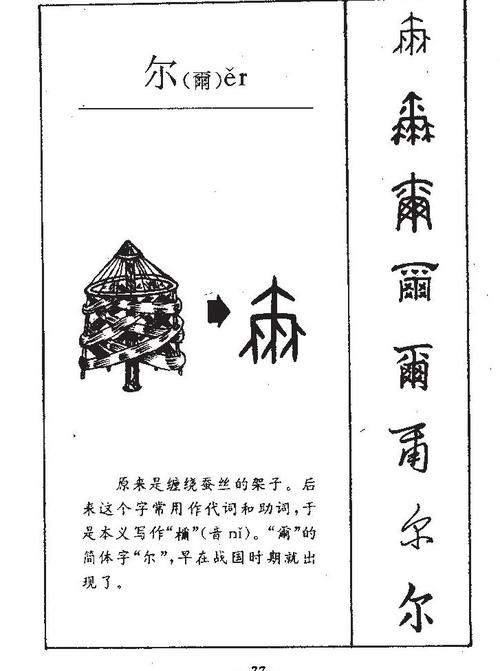 尔(爾)ěr
原来是缠绕蚕丝的架子。后
来这个字常用作代词和助词，于
是本义写作“檷”(音nǐ)。“爾”的
简体字“尔”，早在战国时期就出
现了。
爾
爾
爾
爾
爾
尔
尔
77